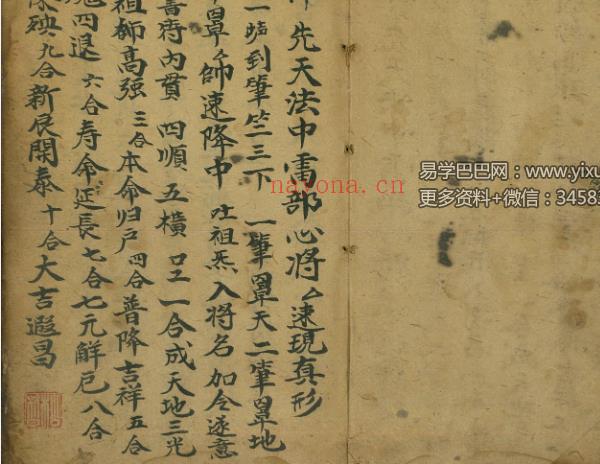 先天法中雷部心将速現真形
到筆竺三下 一筆罩天二筆罩地
罩 师速降中 吐祖炁入将名加令遂意
書符内貫 四順 五横 一合成天地三光
祖師高强 三合本命归户 四合普降吉祥 五合
四退 六合寿命延長七合七元解厄八合
殃 九合新展開泰 十合大吉遐昌
nayona.cn
易学巴巴网：www.yixu
更多资料+微信：34583